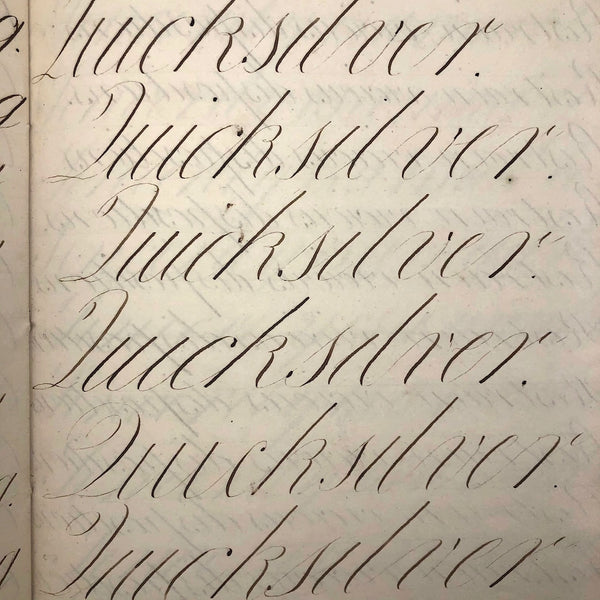 Quicksilver.
Quicksilver.
Quicksilver.
Quicksilver.
Quicksilver.
Quicksilver